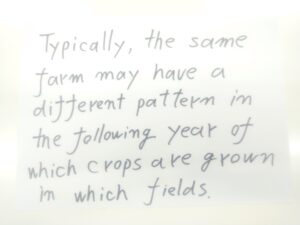 Typically, the same
farm may have a
different pattern in
the following year of
which crops are grown
in which fields.